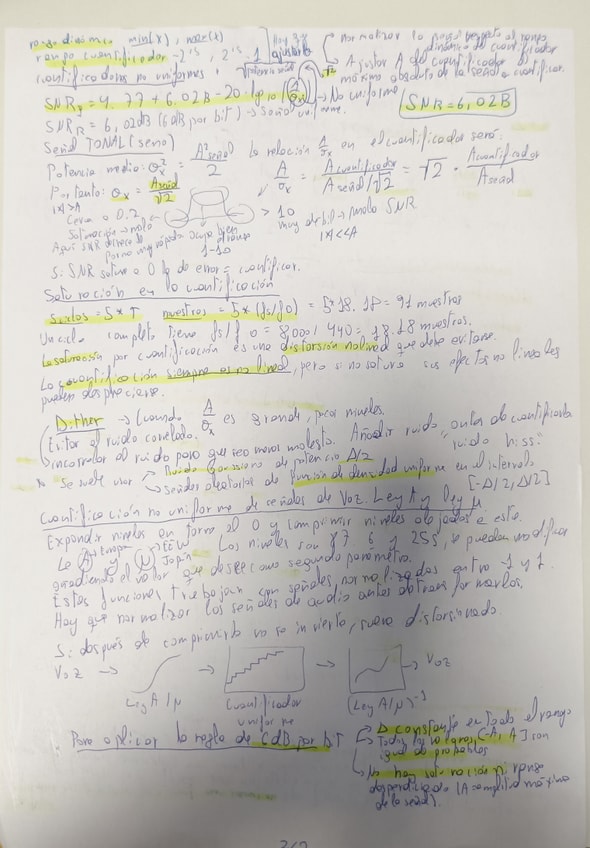 rango dinámico min(x), max(x)
rango cuantificador -2^15, 2^15 - 1
Hay 2 x ajustarlo
normalizar la señal respecto al rango dinámico del cuantificador
A ajustar A del cuantificador al máximo absoluto de la señal a cuantificar.
cuantificadores no uniformes
potencia señal
SNR = 4.77 + 6.02B - 20 · log10 (A/σx) → No uniforme
SNR = 6,02B
SNR = 6,02dB (6dB por bit) → Señal uniforme.
Señal TONAL (seno)
Potencia media: σx² = A²señal / 2
La relación A/σx en el cuantificador será:
Por tanto: σx = Aseñal / √2
A/σx = Acuantificador / Aseñal/√2 = √2 · Acuantificador / Aseñal
|x|>A
Cerca a 0.2
Saturación → malo
> 10
muy débil → malo SNR
|x|<<A
Aquí SNR decrece
muy rápido
1-10
Si SNR satura a 0 la de error = cuantificar.
Saturación en la cuantificación
5 ciclos = 5*T muestras = 5*(fs/f0) = 5*18.18 = 91 muestras
Un ciclo completo tiene fs/f0 = 8000/440 = 18.18 muestras.
La saturación por cuantificación es una distorsión no lineal que debe evitarse.
La cuantificación siempre es no lineal, pero si no satura sus efectos no lineales
pueden despreciarse.
Dither → Cuando A/σx es grande, pocos niveles.
Evitar el ruido correlado.
incorrelar el ruido para que sea menos molesto. Añadir ruido antes de cuantificarla
"ruido hiss".
Se suele usar
Ruido Gaussiano de potencia Δ/2
Señales aleatorias de función de densidad uniforme en el intervalo
[-Δ/2, Δ/2]
Cuantificación no uniforme de señales de Voz. Ley A y ley μ
Expandir niveles en torno al 0 y comprimir niveles alejados a este.
La A y μ Los niveles son 87.6 y 255, se pueden modificar
Europa EEUU Japón
añadiendo el valor que desee como segundo parámetro.
Estas funciones trabajan con señales normalizadas entre -1 y 1.
Hay que normalizar las señales de audio antes de transformarlas.
Si después de comprimirla no se invierte, suena distorsionado.
Voz → → → Voz
Ley A/μ Cuantificador uniforme (Ley A/μ)^-1
Para aplicar la regla de 6dB por bit
Δ constante en todo el rango
Todos los valores [-A, A] son igual de probables
No hay saturación ni rango desperdiciado (A amplitud máxima de la señal).